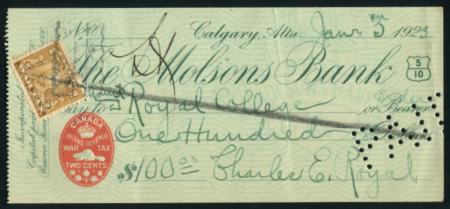 No. Calgary, Alta. Jan 5 1923
The Molsons Bank
5/10
Pay to Royal College or Bearer
One Hundred Dollars
$100.00 Charles E. Royal
CANADA
INLAND REVENUE
WAR TAX
TWO CENTS